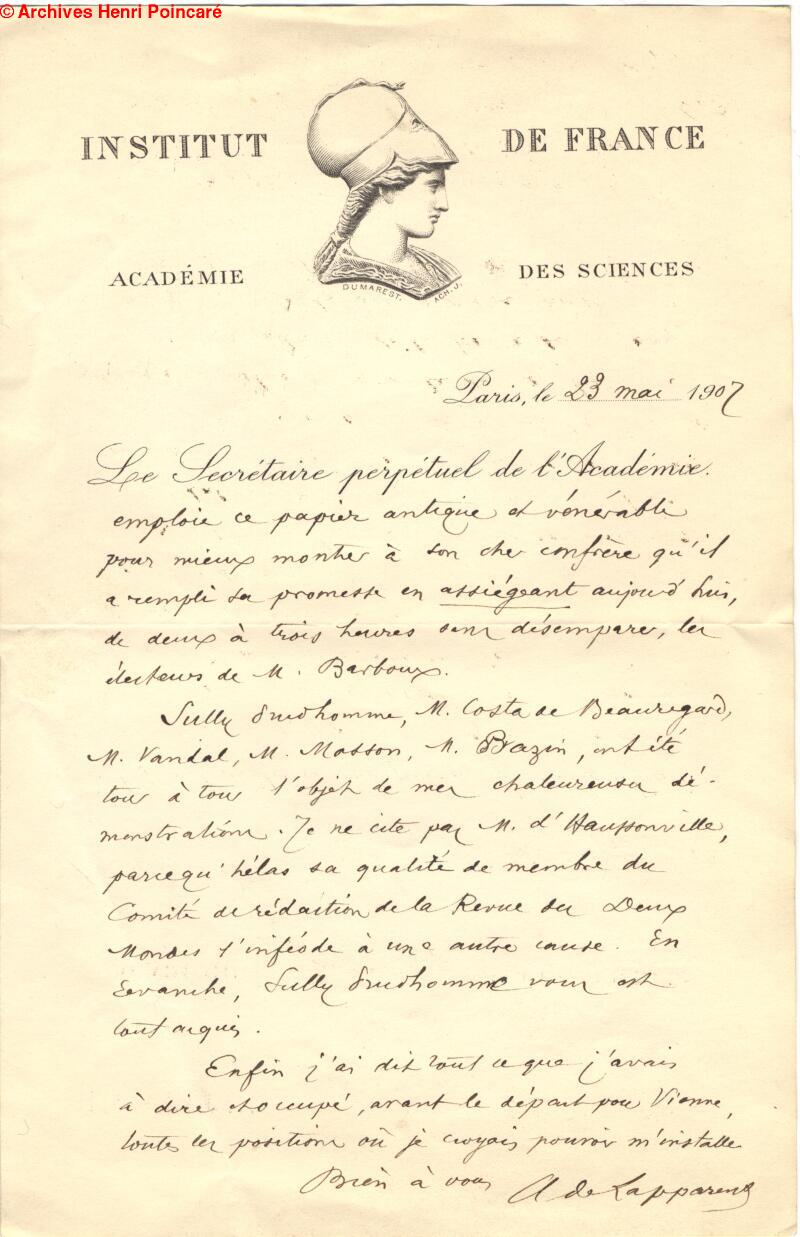 © Archives Henri Poincaré
INSTITUT DE FRANCE
ACADÉMIE DES SCIENCES
DUMAREST. ACH. J.
Paris, le 23 mai 1907
Le Secrétaire perpétuel de l'Académie.
emploie ce papier antique et vénérable
pour mieux montrer à son cher confrère qu'il
a rempli sa promesse en assiégeant aujourd'hui,
de deux à trois heures sans désemparer, les
électeurs de M. Barboux.
Sully Prudhomme, M. Costa de Beauregard,
M. Vandal, M. Masson, M. Bazin, ont été
tour à tour l'objet de mes chaleureuses dé-
monstrations. Je ne cite pas M. d'Haussonville,
parce qu'hélas sa qualité de membre du
Comité de rédaction de la Revue des Deux
Mondes l'inféode à une autre cause. En
revanche, Sully Prudhomme vous est
tout acquis.
Enfin j'ai dit tout ce que j'avais
à dire et occupé, avant le départ pour Vienne,
toutes les positions où je croyais pouvoir m'installer
Bien à vous A de Lapparent